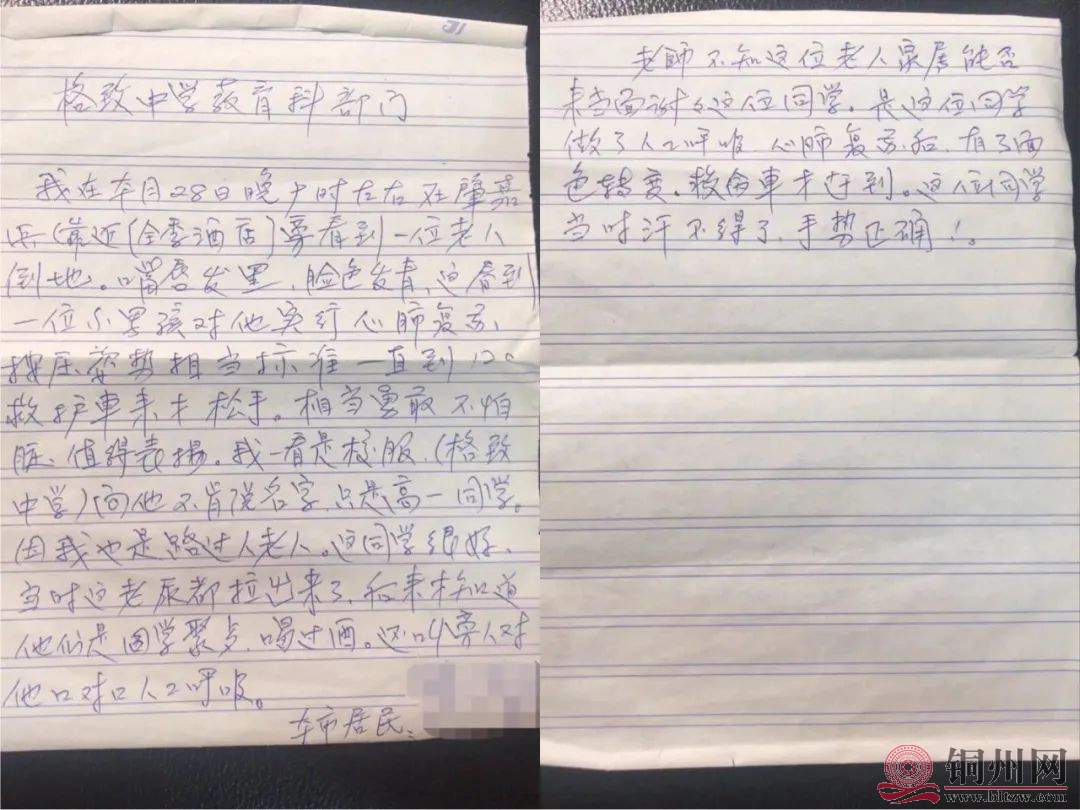 格致中学教育科部门
我在本月28日晚7时左右在肇嘉
浜(靠近[全季酒店]旁看到一位老人
倒地。嘴唇发黑,脸色发青,这看到
一位小男孩对他实行心肺复苏、
按压姿势相当标准一直到120
救护車来才松手。相当勇敢不怕
脏、值得表揚。我一看是校服.(格致
中学)问他不肯说名字.只是高一同学。
因我也是路过人老人。这同学很好、
当时这老尿都拉出来了.后来才知道
他们是同学聚会.喝过酒。还叫旁人对
他口对口人工呼吸。
本市居民:
老師不知这位老人家属能否
来当面谢谢这位同学.是这位同学
做了人工呼吸心肺复苏后.有了面
色转变.救命車才赶到。这位同学
当时汗不得了.手势正确!。
铜州网
www.bltzw.com